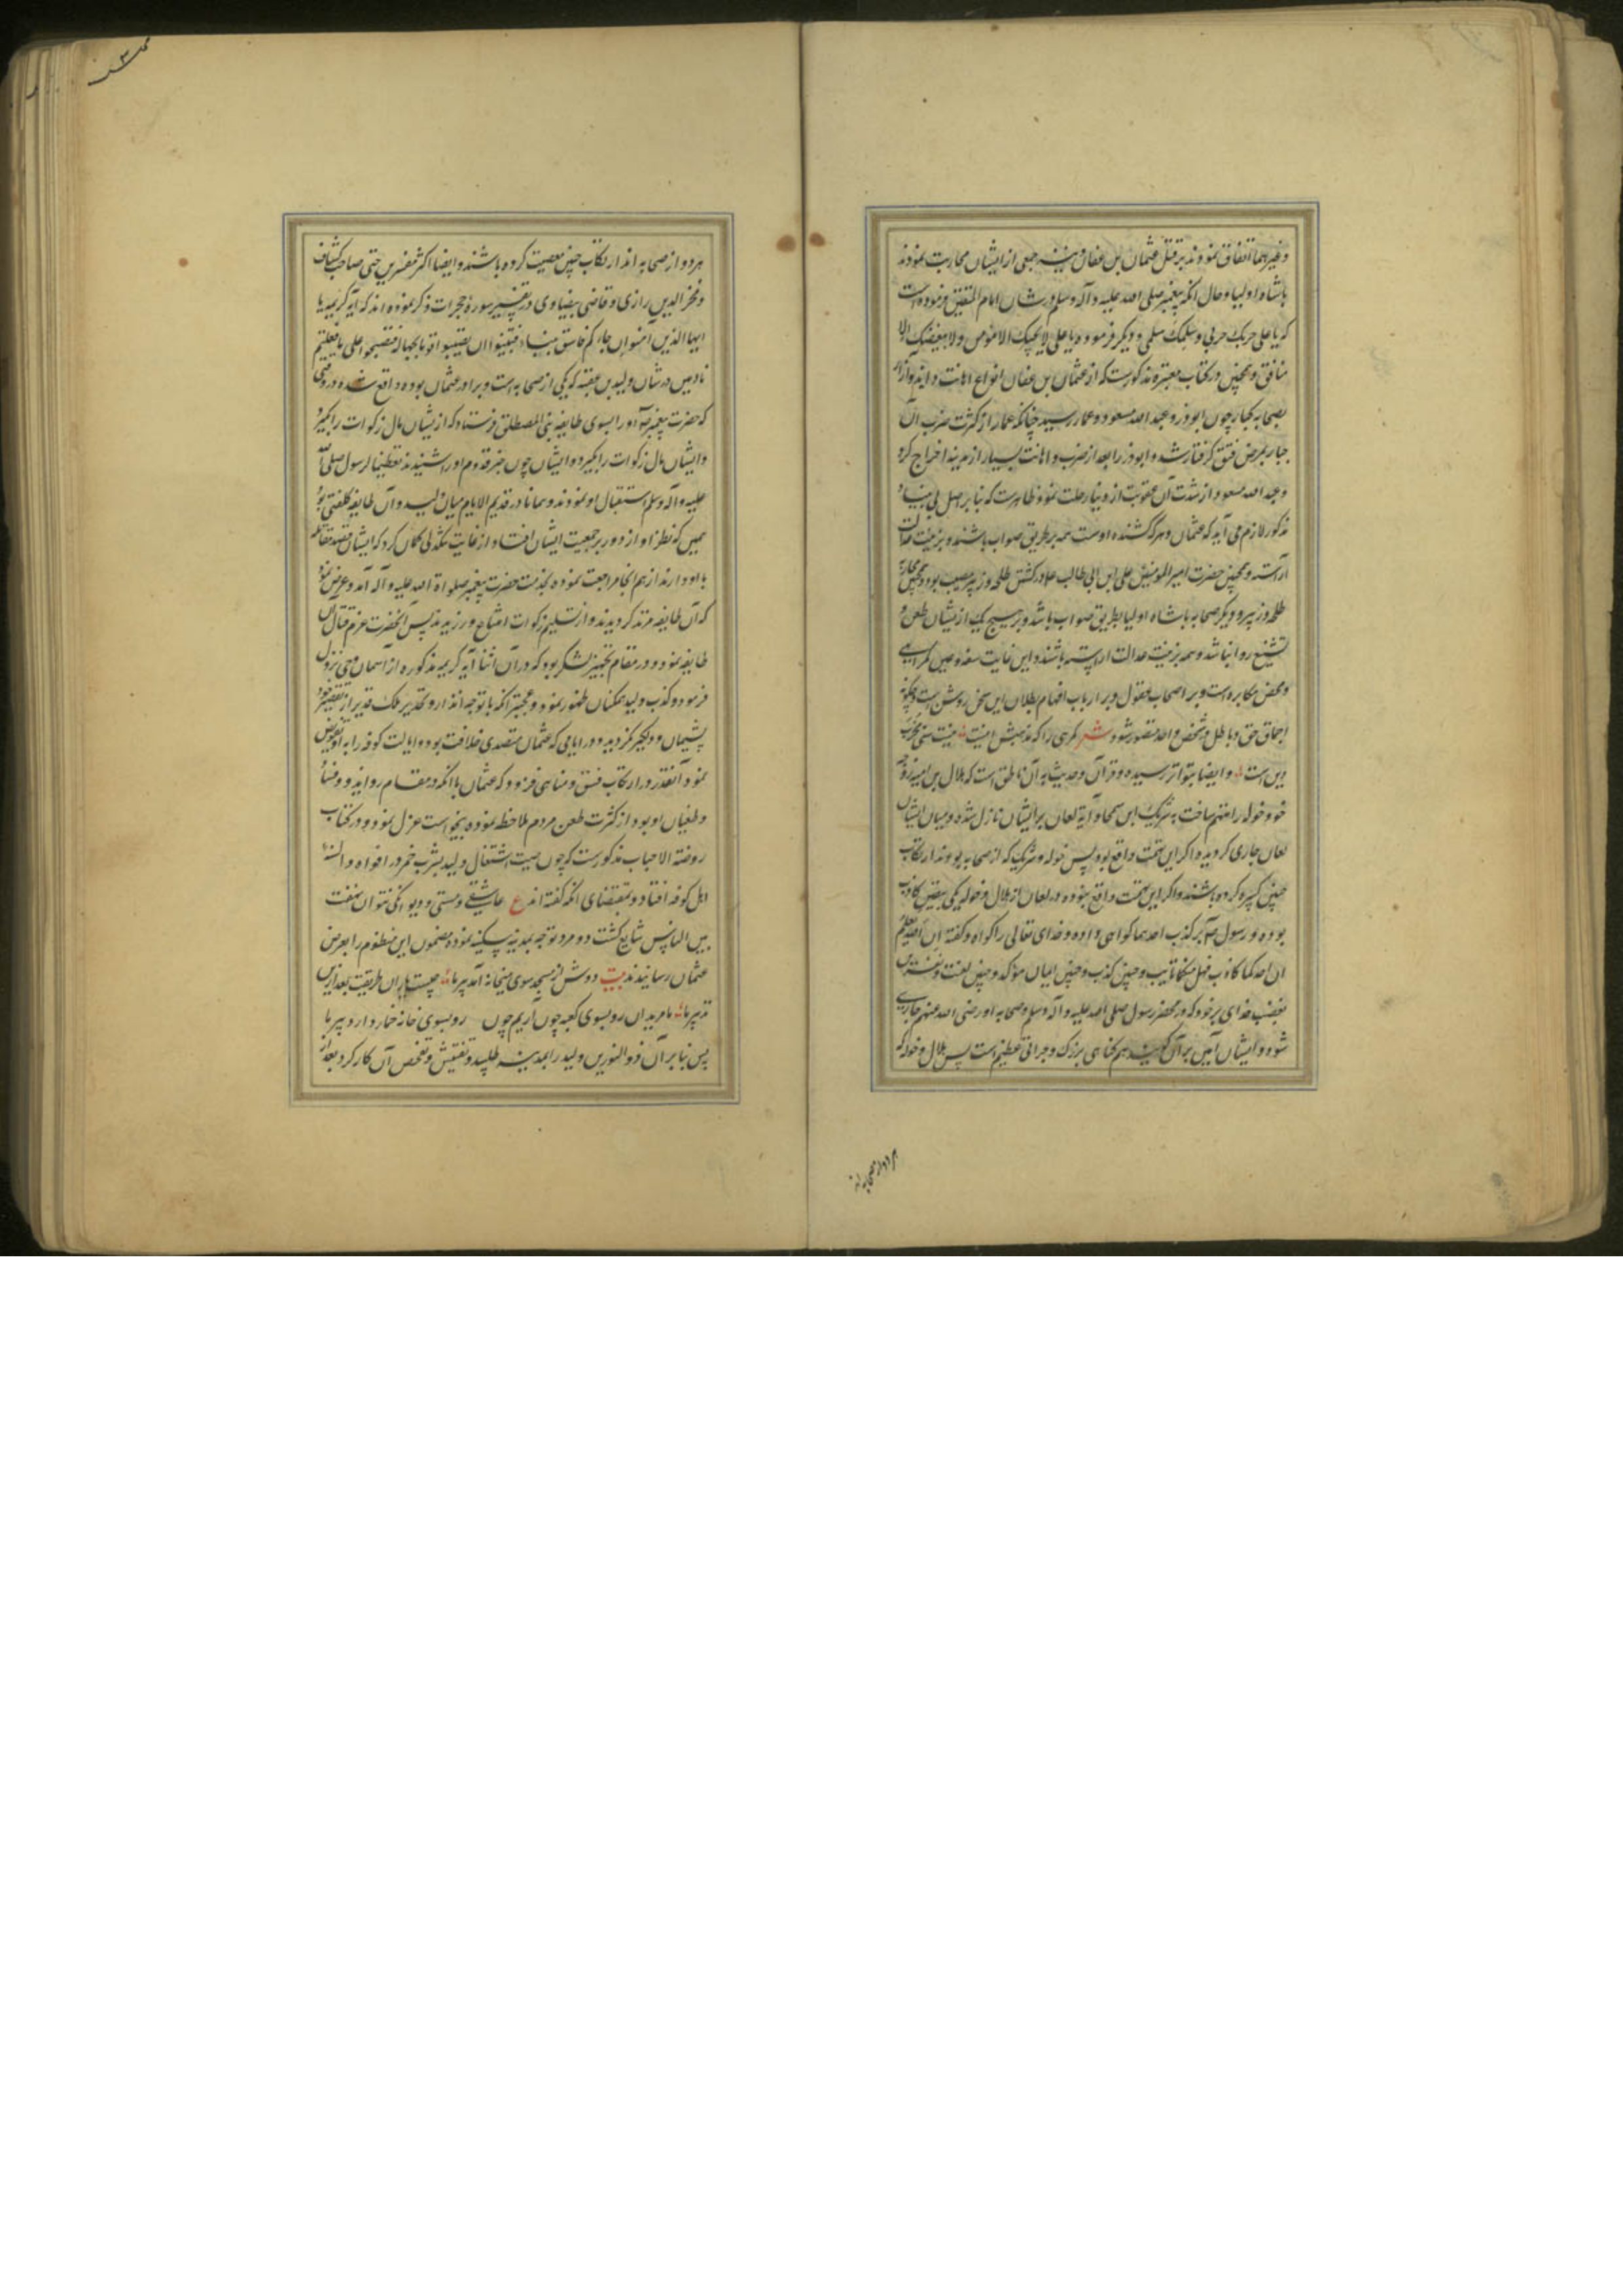 وغیرهما اتفاق نمودند بر قتل عثمان بن عفان و نیز جمعی از ایشان محاربت نمودند
باشاه اولیا و حال آنکه پیغمبر صلی الله علیه وآله وسلم در شان امام المتقین فرموده است
که یا علی حربک حربی وسلمک سلمی و دیگر فرموده یا علی لا یحبک الا مؤمن ولا یبغضک الا
منافق و همچنین در کتاب معتبره مذکورست که از عثمان بن عفان انواع اهانت و ایذا و آزار
بصحابه کبار چون ابوذر و عبد الله مسعود و عمار رسید چنانکه عمار از کثرت ضرب آن
جبار بمرض فتق گرفتار شد و ابوذر را بعد از ضرب و اهانت بسیار از مدینه اخراج کرد
و عبد الله مسعود از شدت آن عقوبت از دنیا رحلت نمود و ظاهرست که بنا بر اصل بی بنیاد
مذکور لازم می آید که عثمان و هر که کشنده اوست همه بر طریق صواب باشند و بزینت عدالت
آراسته و همچنین حضرت امیر المومنین علی ابن ابی طالب ع در کشتن طلحه و زبیر مصیب بود و همچنین محاربه
طلحه و زبیر و دیگر صحابه باشاه اولیا بطریق صواب باشد و بر هیچ یک از ایشان طعن و
تشنیع روا نباشد و همه بزینت عدالت اراسته باشند و این غایت سفه و عین گمراهی
و محض مکابره است و بر اصحاب عقول و بر ارباب افهام بطلان این سخن روشن است و چگونه
اجماق حق و باطل در شخص واحد متصور شود شعر گرهی را که مذهبش اینست
این است و ایضا بتواتر رسیده و قرآن و حدیث به آن ناطق است که هلال بن امیه زوجه
خود خوله را متهم ساخت به شریک ابن سحما و آیة لعان بر ایشان نازل شده و میان ایشان
لعان جاری گردید و اگر این تهمت واقع بود پس خوله و شریک که از صحابه بودند ارتکاب
چنین کبیره کرده باشند و اگر این تهمت واقع نبوده در لعان از هلال و خوله یکی بیقین کاذب
بوده و رسول ص بر کذب احدهما گواهی داده و خدای تعالی را گواه و گفته ان الله یعلم
ان احدکما کاذب فهل منکما تایب و چنین کذب و چنین ایمان مؤکد و چنین لعنت و نفرین
بغضب خدای بر خود که در محضر رسول صلی الله علیه وآله وسلم وصحابه او رضی الله عنهم جاری
شود و ایشان آمین بر آن گویند هم گناهی بزرگ و جراتی عظیم است پس هلال و خوله که
هر دو از صحابه اند
هر دو از صحابه اند ارتکاب چنین معصیت کرده باشند و ایضا اکثر مفسرین حتی صاحب کشاف
و فخر الدین رازی و قاضی بیضاوی در تفسیر سوره حجرات ذکر نموده اند که آیه کریمه یا
ایها الذین آمنوا ان جاءکم فاسق بنباء فتبینوا ان تصیبوا قوما بجهالة فتصبحوا علی ما فعلتم
نادمین در شان ولید بن عقبه که یکی از صحابه است و برادر عثمان بوده واقع شده در وقتی
که حضرت پیغمبر ص او را بسوی طایفه بنی المصطلق فرستاد که از ایشان مال زکوات را بگیرد
و ایشان مال زکوات را بگیرد و ایشان چون خبر قدوم او را شنیدند تعظیما لرسول صلی الله
علیه وآله وسلم استقبال او نمودند و همانا در قدیم الایام میان ولید و آن طایفه کلفتی بود
همین که نظر او از دور بر جمعیت ایشان افتاد از غایت سنگدلی گمان کرد که ایشان قصد مقاتله
با او دارند از هم آنجا مراجعت نموده بخدمت حضرت پیغمبر صلواة الله علیه وآله آمد و عرض نمود
که آن طایفه مرتد گردیدند و از تسلیم زکوات امتناع ورزیدند پس آنحضرت عزم قتال آن
طایفه نمود و در مقام تجهیز لشکر بود که در آن اثنا آیه کریمه مذکوره از آسمان وحی نزول
فرمود و کذب ولید همکنان ظهور نمود و عجبتر آنکه با توجه انذار و تحذیر ملک قدیر از تقصیر خود
پشیمان و دلگیر نگردید و در ایامی که عثمان متصدی خلافت بود و ایالت کوفه را به او تفویض
نمود آنقدر در ارتکاب فسق و مناهی فزود که عثمان با آنکه در مقام
و طغیان او بود از کثرت طعن مردم ملاحظه نموده بخواست عزل نمود و در کتاب
روضة الاحباب مذکورست که چون صیت اشتغال ولید بشرب خمر در افواه و السنه
اهل کوفه افتاد و بمقتضای آنکه گفته اند ع عاشقی و مستی و دیوانگی نتوان نهفت
بین الناس شایع گشت دو مرد توجه بمدینه سکینه نموده مضمون این منظوم را بعرض
عثمان رسانیدند بیت دوش از مسجد سوی میخانه آمد پیر ما چیست یاران طریقت بعد ازین
تدبیر ما ما مریدان رو بسوی کعبه چون آریم چون رو بسوی خانه خمار دارد پیر ما
پس بنا بر آن ذو النورین ولید را بمدینه طلبید و تفتیش و تفحص آن کار کرد بعد از